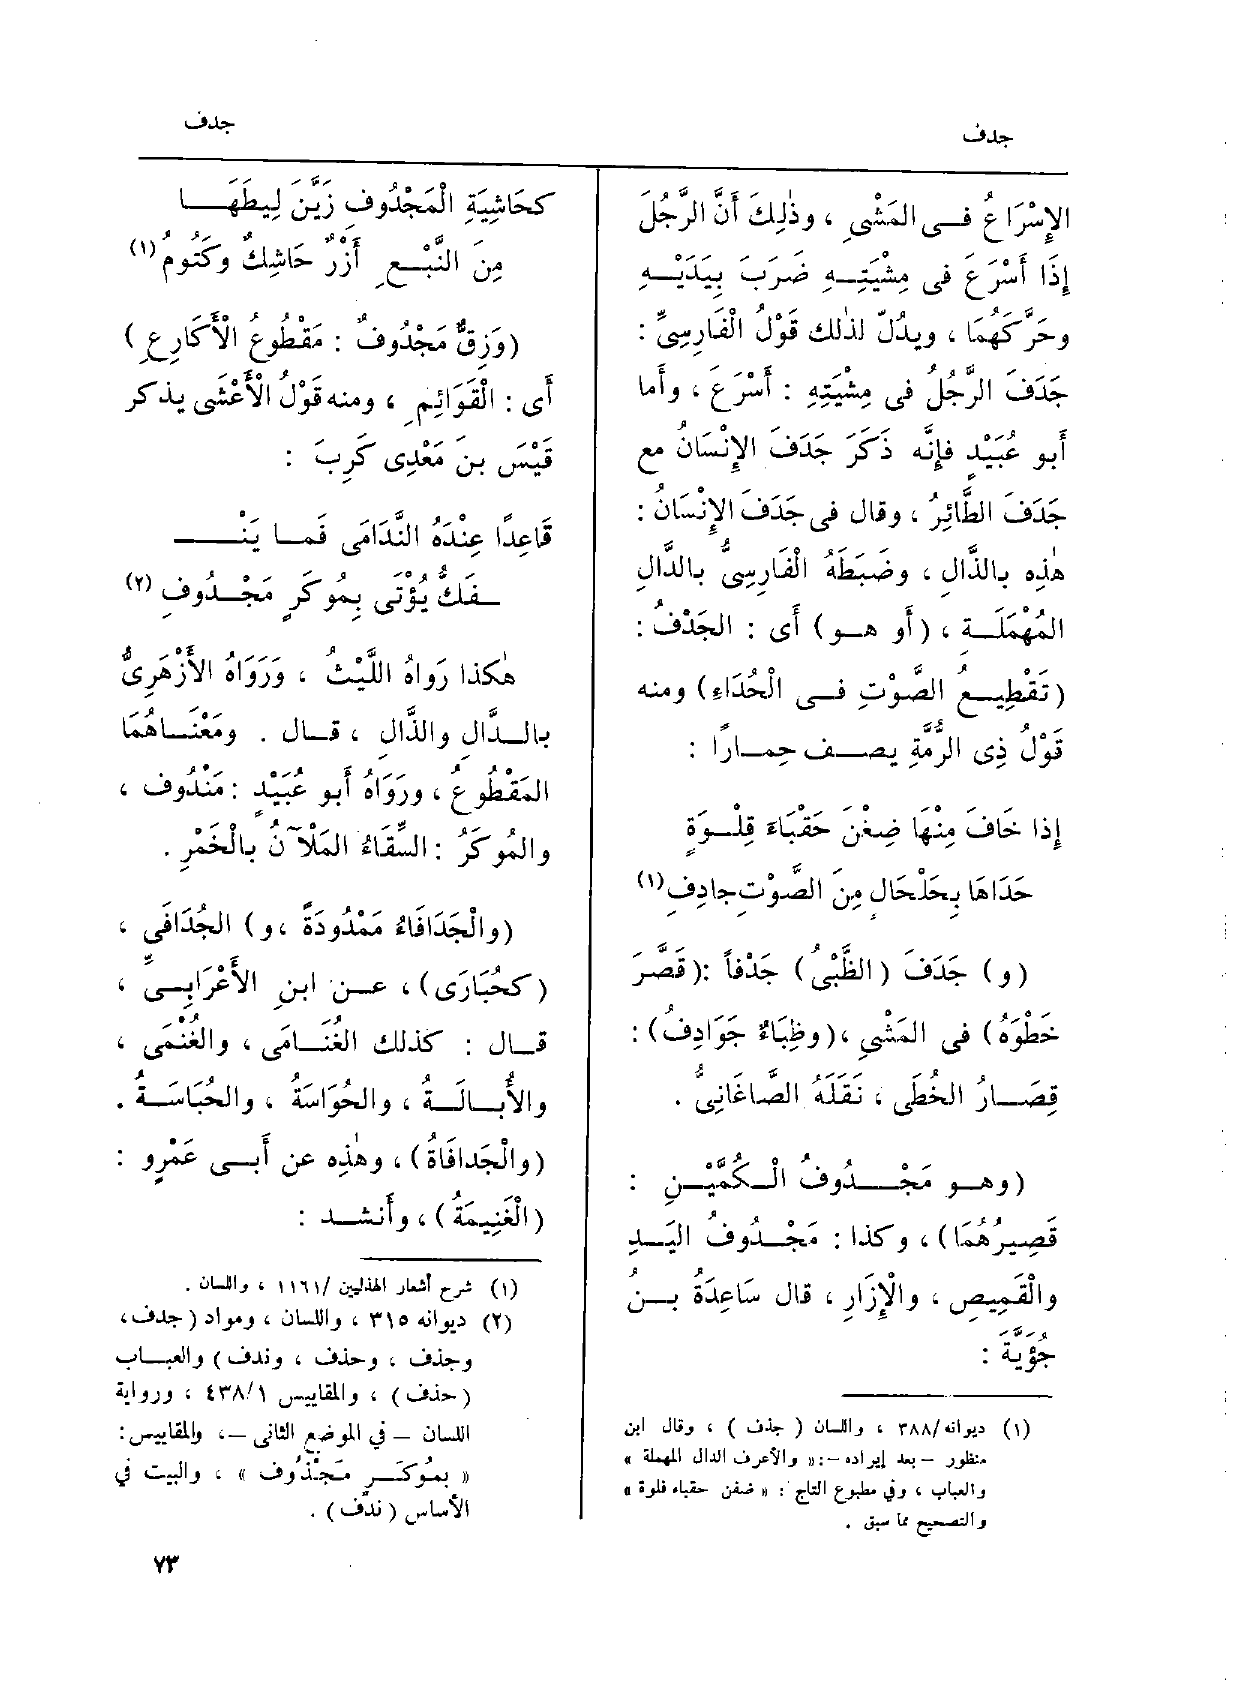 جدف
جدف
الإِسْرَاعُ فى المَشْىِ ، وذٰلِكَ أَنَّ الرَّجُلَ
إِذَا أَسْرَعَ فى مِشْيَتِهِ ضَرَبَ بِيَدَيْهِ
وحَرَّكَهُمَا ، ويدُلّ لذٰلك قَوْلُ الْفَارِسِىِّ :
جَدَفَ الرَّجُلُ فى مِشْيَتِهِ : أَسْرَعَ ، وأَما
أَبو عُبَيْدٍ فإِنَّه ذَكَرَ جَدَفَ الإِنْسَانُ مع
جَدَفَ الطَّائِرُ ، وقال فى جَدَفَ الإِنْسَانُ :
هٰذِه بالذَّالِ ، وضَبَطَهُ الْفَارِسِىُّ بالدَّالِ
المُهْمَلَةِ ، (أَو هو) أَى : الجَدْفُ :
(تَقْطِيعُ الصَّوْتِ فى الْحُدَاءِ) ومنه
قَوْلُ ذِى الرُّمَّةِ يصف حِماراً :
إِذا خَافَ مِنْهَا ضِغْنَ حَقْبَاءَ قِلْوَةٍ
حَدَاهَا بِحَلْحَالٍ مِنَ الصَّوْتِ جادِفِ (١)
(و) جَدَفَ (الظَّبْىُ) جَدْفاً : (قَصَّرَ
خَطْوَهُ) فى المَشْىِ ، (وظِبَاءٌ جَوَادِفُ) :
قِصَارُ الخُطَى ، نَقَلَهُ الصَّاغَانِىُّ .
(وهو مَجْدُوفُ الْكُمَّيْنِ :
قَصِيرُهُمَا) ، وكذا : مَجْدُوفُ اليَدِ
والْقَمِيصِ ، والإِزَارِ ، قال سَاعِدَةُ بنُ
جُؤَيَّةَ :
(١) ديوانه/٣٨٨ ، واللسان ( جذف ) ، وقال ابن
منظور – بعد إيراده –: « والأعرف الدال المهملة »
والعباب ، وفي مطبوع التاج : « ضفن حقباء قلوة »
والتصحيح مما سبق .
كحَاشِيَةِ الْمَجْدُوفِ زَيَّنَ لِيطَهَا
مِنَ النَّبْعِ أَزْرٌ حَاشِكٌ وكَتُومُ (١)
(وَزِقٌّ مَجْدُوفٌ : مَقْطُوعُ الأَكَارِعِ )
أَى : الْقَوَائِمِ ، ومنه قَوْلُ الأَعْشَى يذكر
قَيْسَ بنَ مَعْدِى كَرِبَ :
قَاعِدًا عِنْدَهُ النَّدَامَى فَما يَنْـ
ـفَكُّ يُؤْتَى بِمُوكَرٍ مَجْدُوفِ (٢)
هٰكذا رَواهُ اللَّيْثُ ، ورَوَاهُ الأَزْهَرِىُّ
بالدَّالِ والذَّالِ ، قال . ومَعْنَاهُمَا
المَقْطُوعُ ، ورَوَاهُ أَبو عُبَيْدٍ : مَنْدُوف ،
والمُوكَرُ : السِّقَاءُ المَلْآنُ بالْخَمْرِ .
(والْجَدَافَاءُ مَمْدُودَةً ، و) الجُدَافَى ،
(كحُبَارَى) ، عن ابنِ الأَعْرَابِىِّ ،
قال : كذلك الغُنَامَى ، والغُنْمَى ،
والأُبَالَةُ ، والحُوَاسَةُ ، والحُبَاسَةُ .
(والْجَدافَاةُ) ، وهٰذِه عن أَبى عَمْرٍو :
(الْغَنِيمَةُ) ، وأَنشد :
(١) شرح أشعار الهذليين /١١٦١ ، واللسان .
(٢) ديوانه ٣١٥ ، واللسان ، ومواد (جدف ،
وجذف ، وحذف ، وندف) والعباب
(حذف) ، والمقاييس ٤٣٨/١ ، ورواية
اللسان – في الموضع الثانى –، والمقاييس :
« بموكَرٍ مَجْذُوف » ، والبيت في
الأساس (ندف) .
٧٣